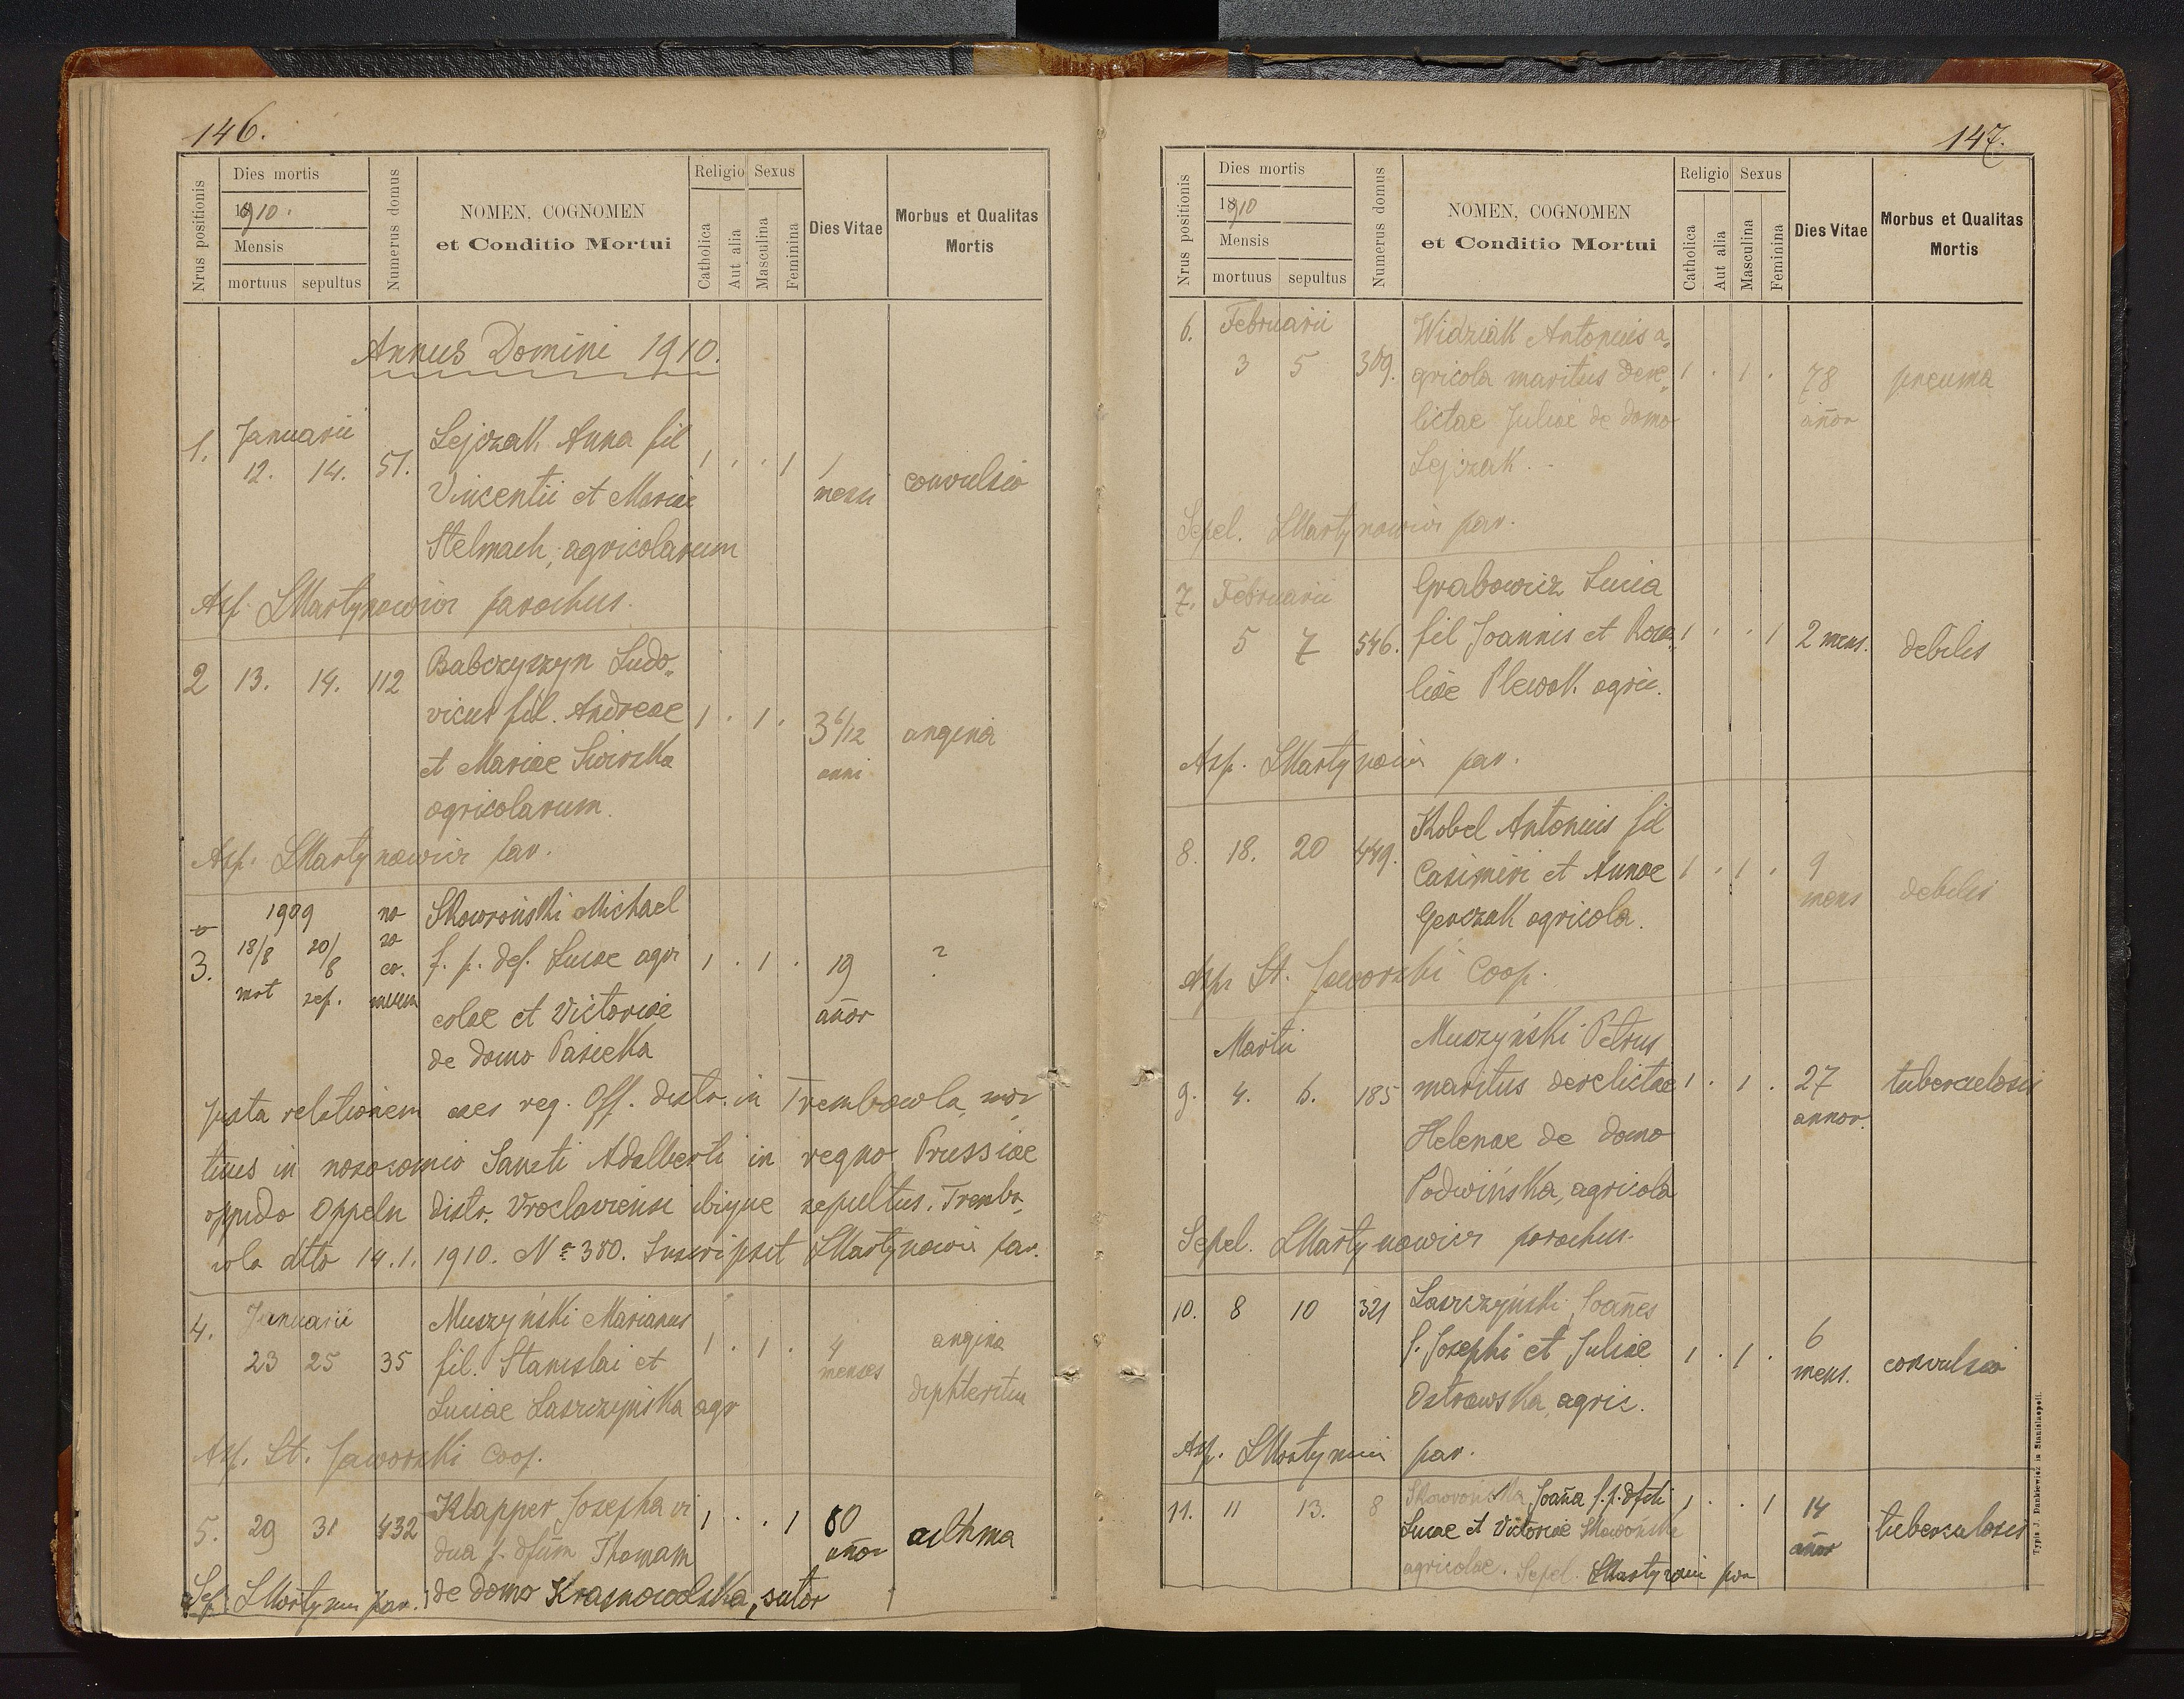 146.
Nrus positionis
Dies mortis
1910.
Mensis
mortuus sepultus
Numerus domus
NOMEN, COGNOMEN
et Conditio Mortui
Religio
Catholica
Aut alia
Sexus
Masculina
Feminina
Dies Vitae
Morbus et Qualitas
Mortis
Annus Domini 1910.
Januarii
1. 12. 14. 51. Lejczak Anna fil
Vincentii et Mariae
Stelmach, agricolarum
1 . . 1 1
mens convulsio
Asp. LMartynowicz parochus.
2 13. 14. 112 Babczyszyn Ludo„
vicus fil. Andreae
et Mariae Swirska
agricolarum.
1 . 1 . 3 6/12
anni angina
Asp. LMartynowicz par.
3. 1909
18/8 20/8
mort sep.
no
so
co.
mium
Skowroński Michael
f. p. def. Lucae agri
colae et Victoriae
de domo Pasieka
1 . 1 . 19
añor ?
Justa relationem caes reg. Off. distr. in Trembowla, mor„
tuus in nosocomio Sancti Adalberti in regno Prussiae
oppido Oppeln distr. Vroclaviense ibique sepultus. Trembo„
wla dtto 14.1. 1910. No 380. Inscripsit LMartynowicz par.
Januarii
4. 23 25 35 Muszyński Marianus
fil. Stanislai et
Luciae Laszczyńska agr
1 . 1 . 4
menses angina
diphteritica
Asp. St. Jaworski Coop.
5. 29 31 432 Klapper Josepha vi
dua p. dfum Thomam
de domo Krasnowolska, sutor
1 . . 1 80
añor asthma
Sep. LMartynowicz par.
147.
Nrus positionis
Dies mortis
1910
Mensis
mortuus sepultus
Numerus domus
NOMEN, COGNOMEN
et Conditio Mortui
Religio
Catholica
Aut alia
Sexus
Masculina
Feminina
Dies Vitae
Morbus et Qualitas
Mortis
Februarii
6. 3 5 309. Widziak Antonius a„
gricola maritus dere„
lictae Juliae de domo
Lejczak.
1 . 1 . 78
añor pneuma
Sepel. LMartynowicz par.
Februarii
7. 5 7 546. Grabowicz Lucia
fil Joannis et Rosa„
liae Plewak agric.
1 . . 1 2 mens. debilis
Asp. LMartynowicz par.
8. 18. 20 449. Kobel Antonius fil
Casimiri et Annae
Gerczak agricola.
1 . 1 . 9
mens debilis
Asp St. Jaworski Coop.
Martii
9. 4. 6. 185 Muszyński Petrus
maritus derelictae
Helenae de domo
Podwińska, agricola
1 . 1 . 27
annor. tuberculosis
Sepel. LMartynowicz parochus.
10. 8 10 321 Laszczyński Joañes
f. Josephi et Juliae
Ostrowska, agric.
1 . 1 . 6
mens. convulsio
Asp. LMartynowicz par.
11. 11 13. 8 Skowrońska Joaña f. p. dfcti
Lucae et Victoriae Skowrońska
agricolae. Sepel. LMartynowicz par
1 . . 1 14
añor tuberculosis
Typis J. Dankiewicz in Stanislaopoli.